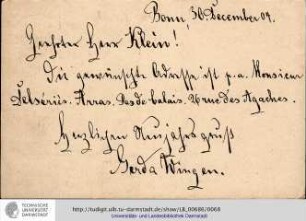 Bonn, 30. December 09.
Geehrter Herr Klein!
Die gewünschte Adresse ist p. a. Monsieur
Arras. Pas de Calais. rue des Agaches.
Herzlichen Neujahrsgruß
Gerda Wingen.
TECHNISCHE
UNIVERSITÄT
DARMSTADT
http://tudigit.ulb.tu-darmstadt.de/show/LB_00686/0068
Universitäts- und Landesbibliothek Darmstadt